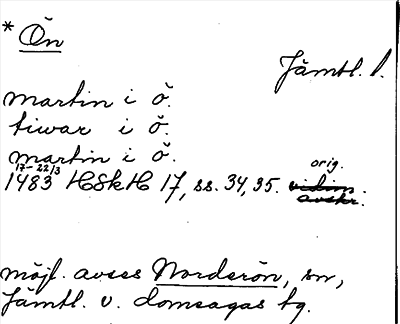 * Ön
Jämtl. l.
martin i ö.
tiwar i ö.
martin i ö.
17-22/3 orig.
1483 HSkH 17, ss. 34, 35. vidim.
avskr.
möjl. avses Norderön, sn,
Jämtl. v. domsagas tg.